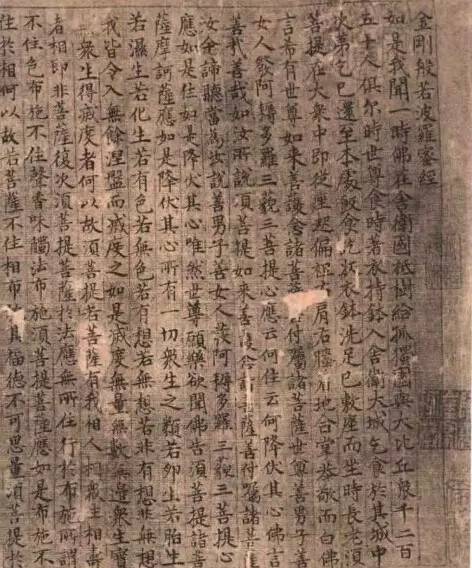 金剛般若波羅蜜經
如是我聞一時佛在舍衛國祇樹給孤獨園與大比丘眾千二百
五十人俱尔時世尊食時著衣持鉢入舍衛大城乞食於其城中
次第乞已還至本處飯食訖收衣鉢洗足已敷座而坐時長老須
菩提在大眾中即從座起偏袒右肩右膝著地合掌恭敬而白佛
言希有世尊如來善護念諸菩付囑諸菩薩世尊善男子善
女人發阿耨多羅三藐三菩提心應云何住云何降伏其心佛言
善哉善哉如汝所說須菩提如來善護念諸菩薩善付囑諸菩
汝今諦聽當為汝說善男子善女人發阿耨多羅三藐三菩提心
應如是住如是降伏其心唯然世尊願樂欲聞佛告須菩提諸菩
薩摩訶薩應如是降伏其心所有一切眾生之類若卵生若胎生
若濕生若化生若有色若無色若有想若無想若非有想非無想
我皆令入無餘涅槃而滅度之如是滅度無量無數無邊眾生實
眾生得滅度者何以故須菩提若菩薩有我相人相眾生相壽
者相即非菩薩復次須菩提菩薩於法應無所住行於布施所謂
不住色布施不住聲香味觸法布施須菩提菩薩應如是布施不
住於相何以故若菩薩不住相布其福德不可思量須菩提於